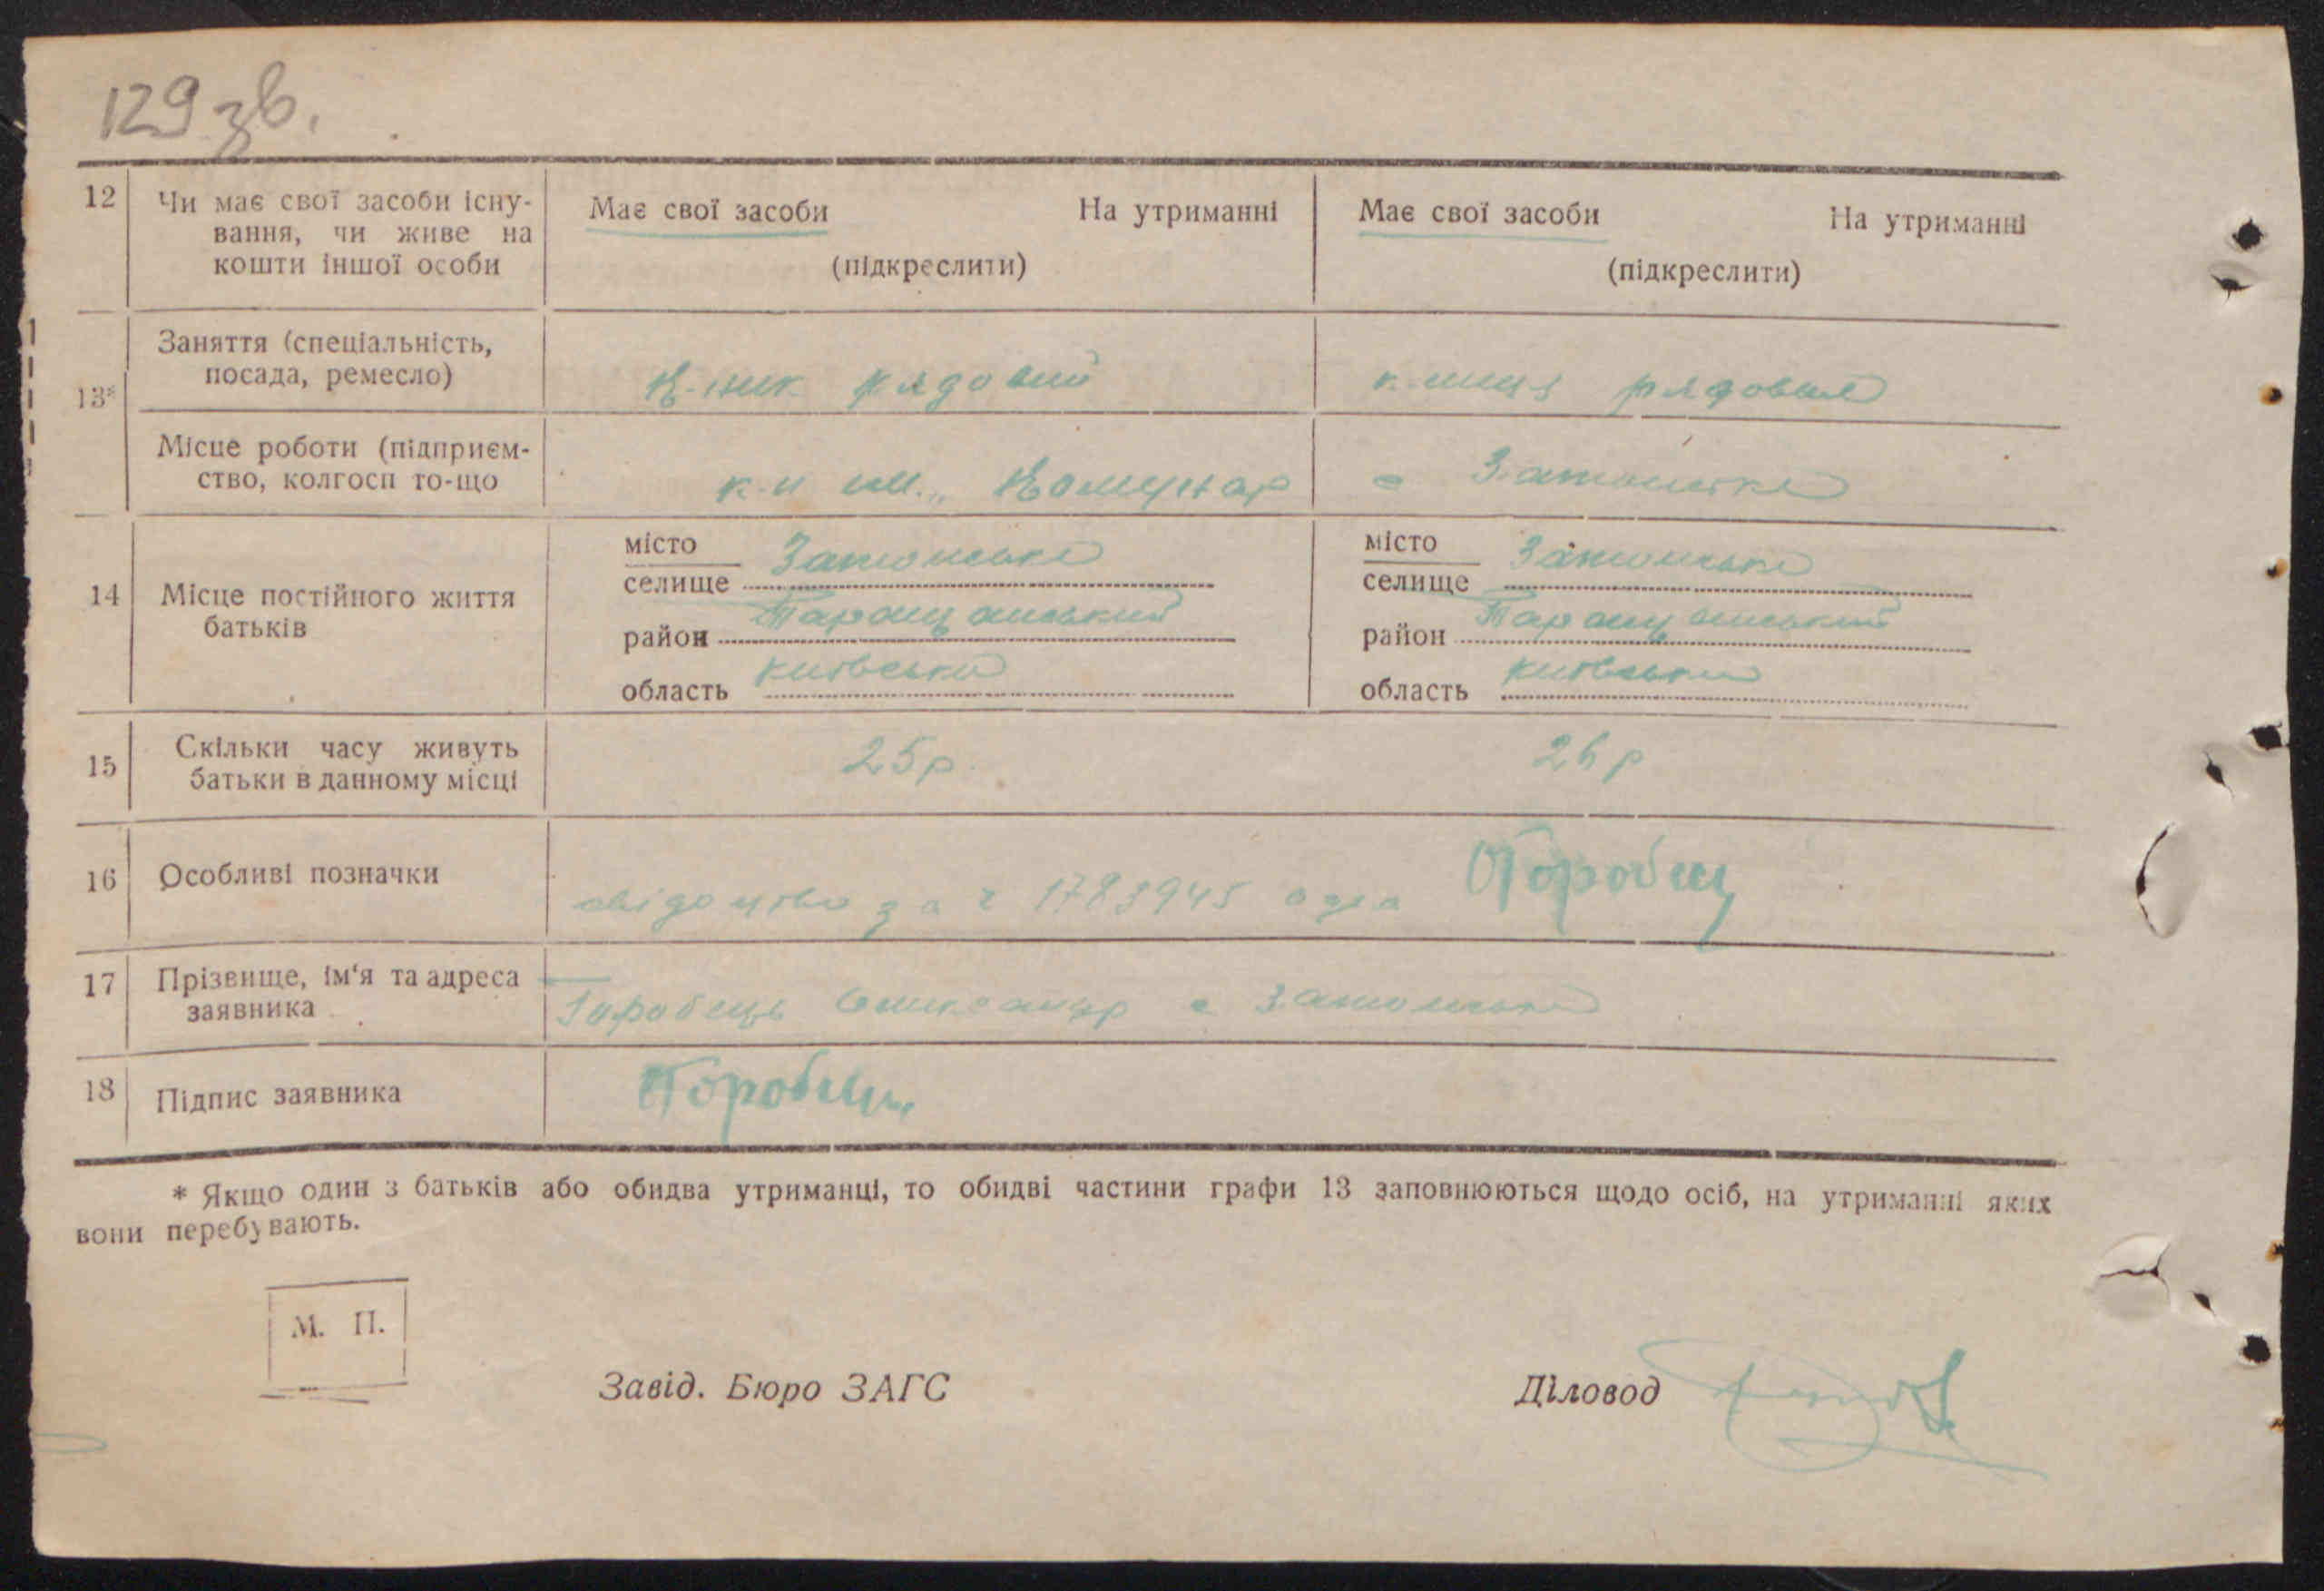 129 зв.
12 Чи має свої засоби існу- Має свої засоби На утриманні Має свої засоби На утриманні
вання, чи живе на
кошти іншої особи (підкреслити) (підкреслити)
Заняття (спеціальність,
посада, ремесло) к-ник рядовий к-ниця рядова
13*
Місце роботи (підприєм-
ство, колгосп то-що к-п ім. „Комунар
місто місто
селище селище
14 Місце постійного життя
батьків
район Таращанський район Таращанський
область київська область київська
15 Скільки часу живуть 25р. 26р
батьки в данному місці
16 Особливі позначки за 1783945 Горобец
17 Прізвище, ім'я та адреса
заявника Горобець
18 Підпис заявника Горобець
* Якщо один з батьків або обидва утриманці, то обидві частини графи 13 заповнюються щодо осіб, на утриманні яких
вони перебувають.
М. П.
Завід. Бюро ЗАГС Діловод